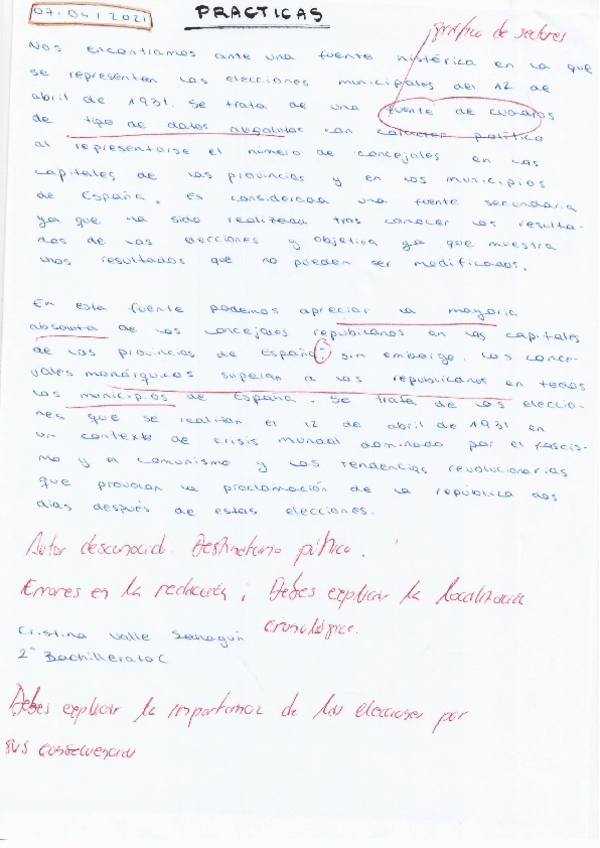 07/04/2021
PRACTICAS
gráfico de sectores
Nos encontramos ante una fuente histórica en la que
se representan las elecciones municipales del 12 de
abril de 1931. Se trata de una fuente de cuadros
de tipo de datos absolutos con carácter político
al representarse el número de concejales en las
capitales de las provincias y en los municipios
de España. es considerada una fuente secundaria
ya que ha sido realizada tras conocer los resulta-
dos de las elecciones y objetiva ya que muestra
unos resultados que no pueden ser modificados.
En esta fuente podemos apreciar la mayoria
absoluta de los concejales republicanos en las capitales
de las provincias de España; sin embargo, los conce-
jales monárquicos superan a los republicanos en todos
los municipios de España. Se trata de las eleccio-
nes que se realizan el 12 de abril de 1931 en
un contexto de crisis mundial dominado por el fascis-
mo y el comunismo y las tendencias revolucionarias
que provocan la proclamación de la república dos
días después de estas elecciones.
Autor desconocid. Destinatario público.
Errores en la redacción; Debes explicar la localización
cronológica.
Cristina Valle Sahagún
2º Bachillerato C
Debes explicar la importancia de las elecciones por
sus consecuencias